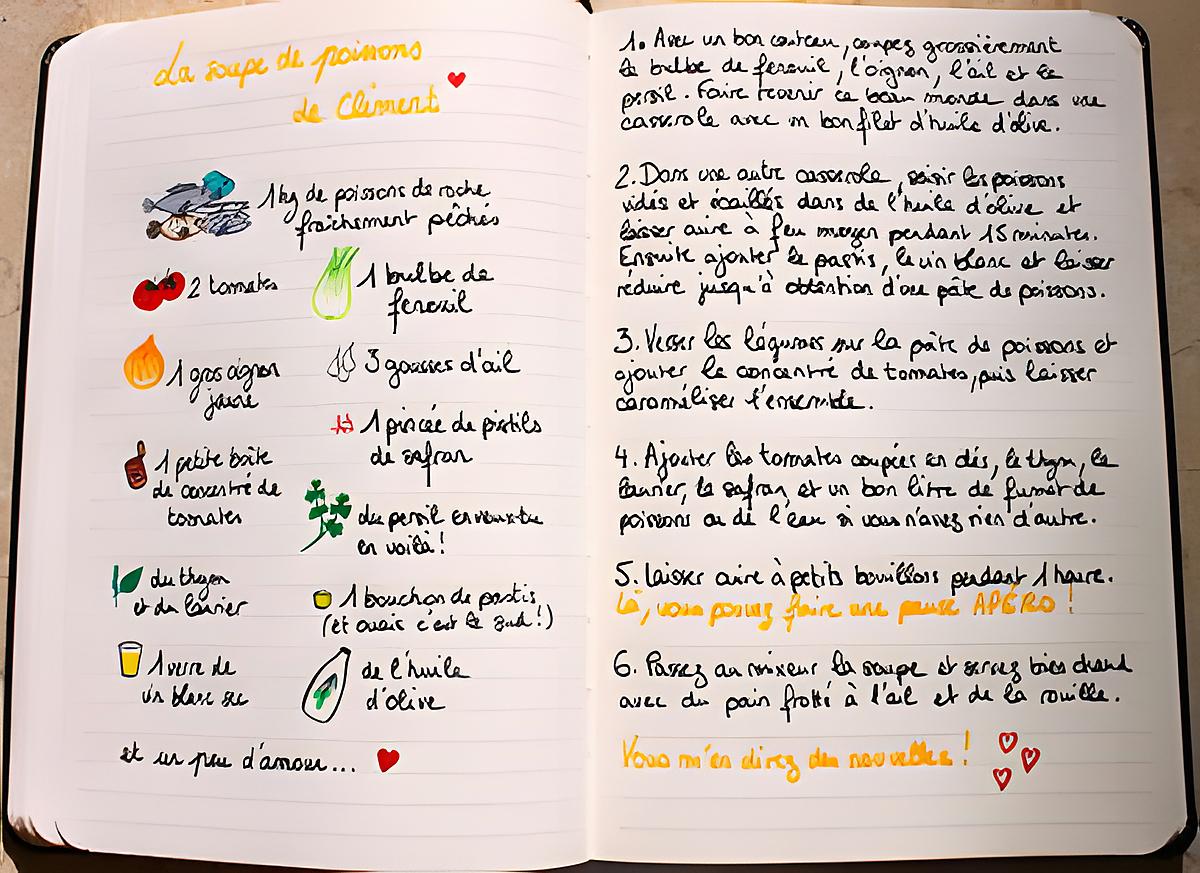 La soupe de poissons
de Clément
1 kg de poissons de roche
fraîchement pêchés
2 tomates
1 bulbe de
fenouil
1 gros oignon
jaune
3 gousses d'ail
1 pincée de pistils
de safran
1 petite boîte
de concentré de
tomates
du persil en veux-tu
en voilà !
du thym
et du laurier
1 bouchon de pastis
(et ouais c'est le sud !)
1 verre de
vin blanc sec
de l'huile
d'olive
et un peu d'amour...
1. Avec un bon couteau, coupez grossièrement
le bulbe de fenouil, l'oignon, l'ail et le
persil. Faire revenir ce beau monde dans une
casserole avec un bon filet d'huile d'olive.
2. Dans une autre casserole, saisir les poissons
vidés et écaillés dans de l'huile d'olive et
laisser cuire à feu moyen pendant 15 minutes.
Ensuite ajouter le pastis, le vin blanc et laisser
réduire jusqu'à obtention d'une pâte de poissons.
3. Verser les légumes sur la pâte de poissons et
ajouter le concentré de tomates, puis laisser
caraméliser l'ensemble.
4. Ajouter les tomates coupées en dés, le thym, le
laurier, le safran, et un bon litre de fumet de
poissons ou de l'eau si vous n'avez rien d'autre.
5. Laisser cuire à petits bouillons pendant 1 heure.
Là, vous pouvez faire une pause APÉRO !
6. Passez au mixeur la soupe et servez bien chaud
avec du pain frotté à l'ail et de la rouille.
Vous m'en direz des nouvelles !